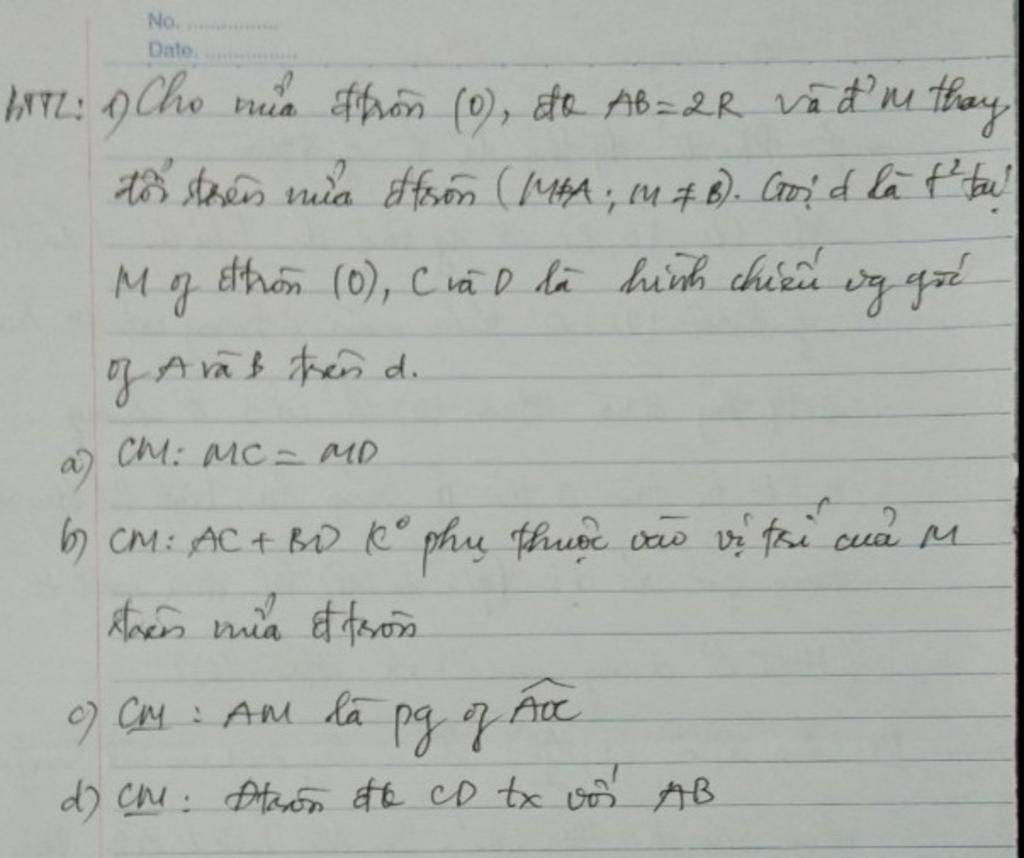 No. ................
Date. ................
BTTL: 1) Cho nửa đtròn (O), đk AB = 2R và đ' M thay
đổi trên nửa đtròn (M≠A; M ≠ B). Gọi d là t² tại
M of đtròn (O), C và D là hình chiếu vg góc
of A và B trên d.
a) CM: MC = MD
b) CM: AC + BD k° phụ thuộc vào vị trí của M
trên nửa đtròn
c) CM : AM là pg of AOC
d) CM : Đtròn đk CD tx với AB